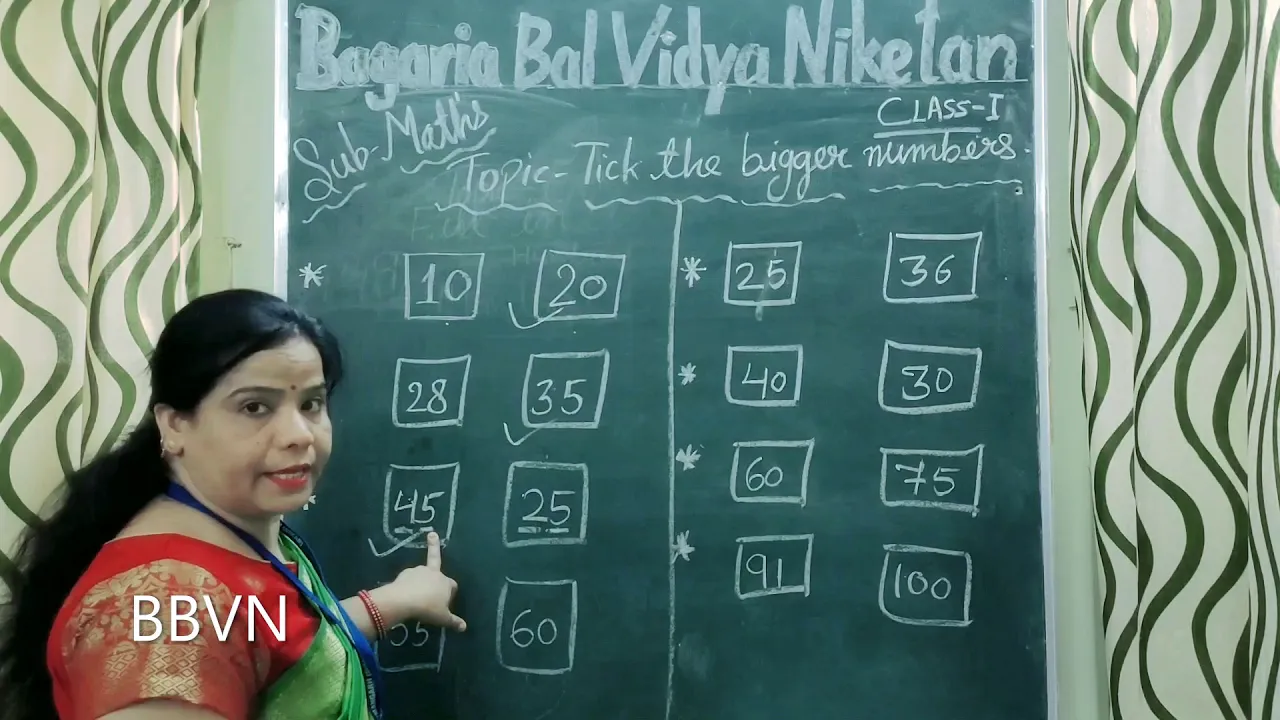 Bagaria Bal Vidya Niketan
Sub-Maths
CLASS-I
Topic- Tick the bigger numbers.
* 10 20
28 35
45 25
60
* 25 36
* 40 30
* 60 75
* 91 100
BBVN